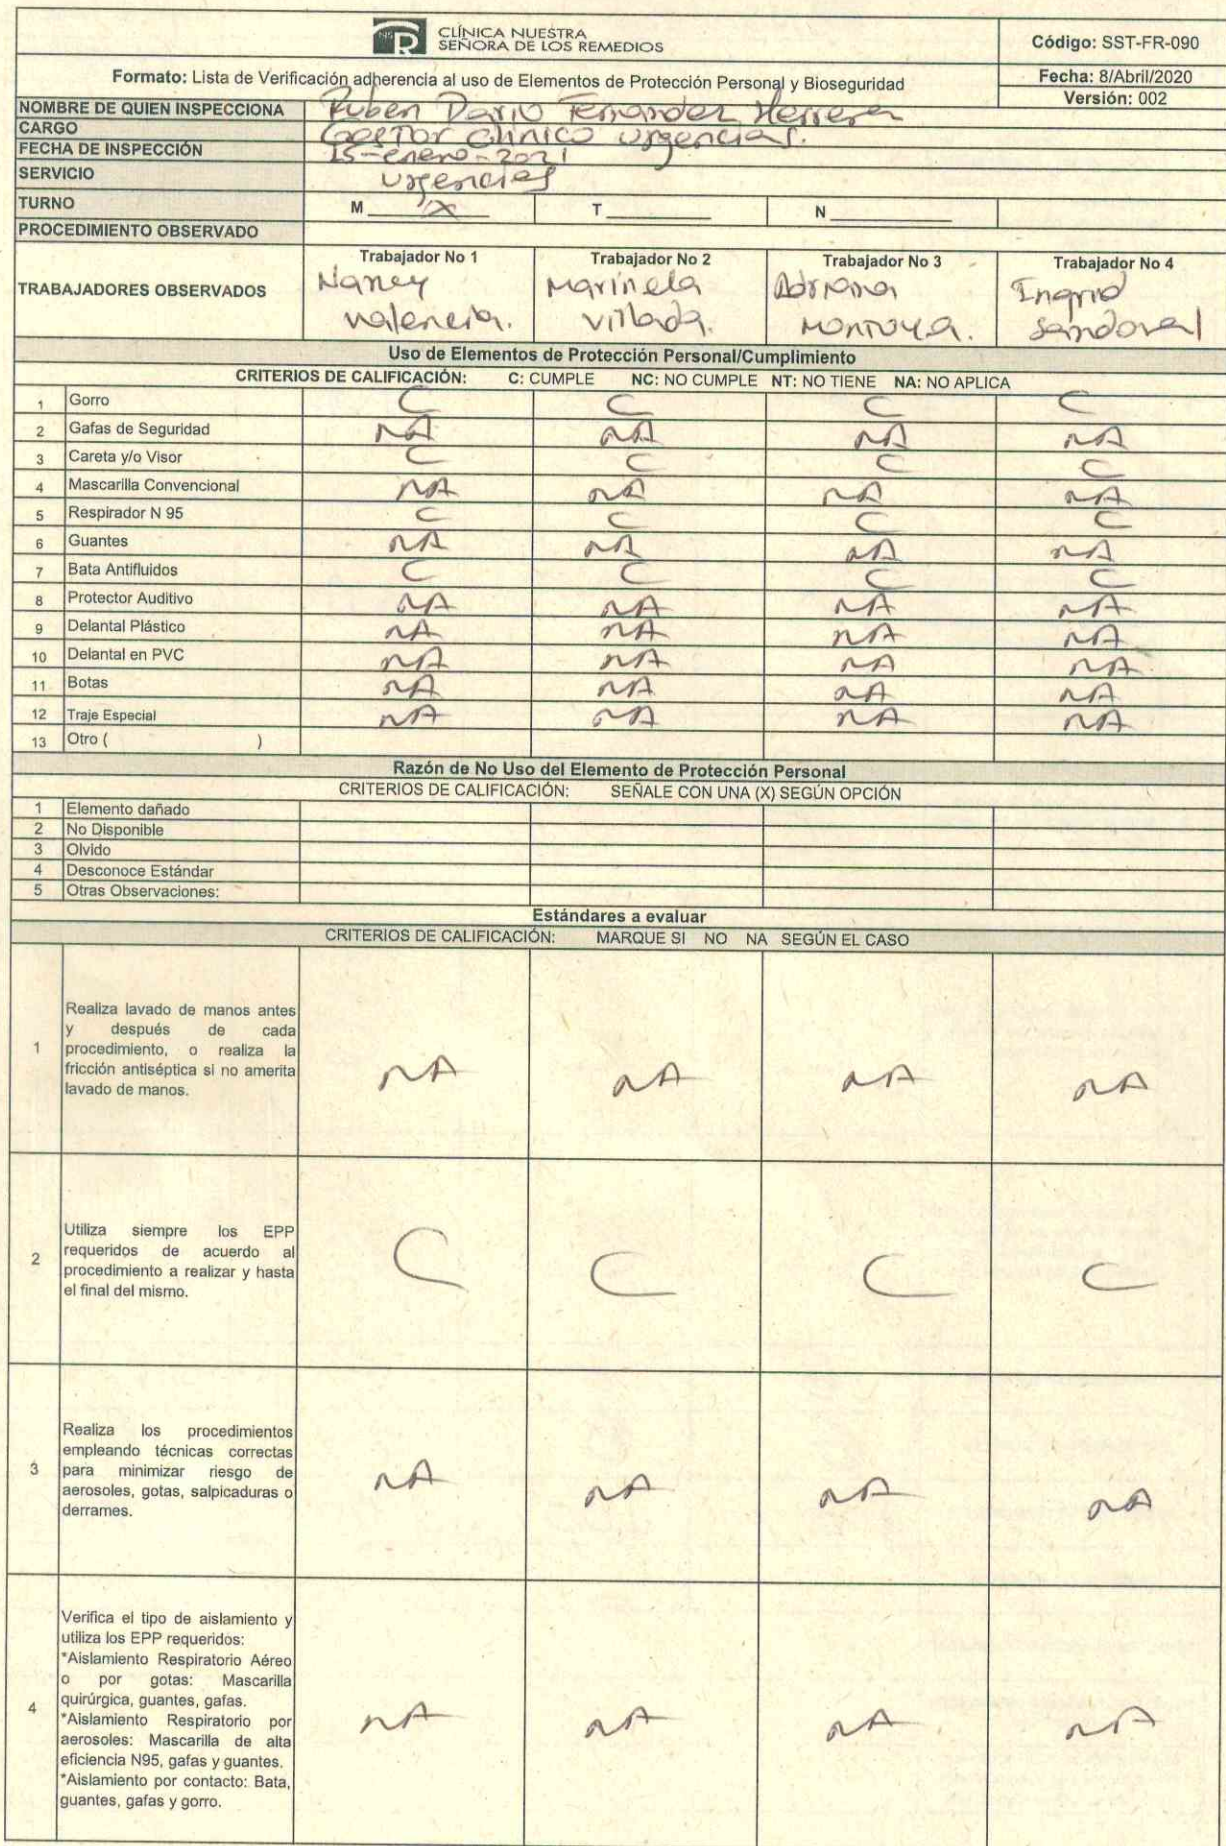 CLÍNICA NUESTRA
SEÑORA DE LOS REMEDIOS
Código: SST-FR-090
Formato: Lista de Verificación adherencia al uso de Elementos de Protección Personal y Bioseguridad
Fecha: 8/Abril/2020
Versión: 002
NOMBRE DE QUIEN INSPECCIONA Ruben Dario Fernandez Herrera
CARGO Gestor Clinico urgencias.
FECHA DE INSPECCIÓN 15-enero-2021
SERVICIO urgencias
TURNO M X T N
PROCEDIMIENTO OBSERVADO
TRABAJADORES OBSERVADOS
Trabajador No 1 Trabajador No 2 Trabajador No 3 Trabajador No 4
Nancy Marinela Adriana Ingrid
Valencia. Villada. Montoya. Sandoval
Uso de Elementos de Protección Personal/Cumplimiento
CRITERIOS DE CALIFICACIÓN: C: CUMPLE NC: NO CUMPLE NT: NO TIENE NA: NO APLICA
1 Gorro C C C C
2 Gafas de Seguridad NA NA NA NA
3 Careta y/o Visor C C C C
4 Mascarilla Convencional NA NA NA NA
5 Respirador N 95 C C C C
6 Guantes NA NA NA NA
7 Bata Antifluidos C C C C
8 Protector Auditivo NA NA NA NA
9 Delantal Plástico NA NA NA NA
10 Delantal en PVC NA NA NA NA
11 Botas NA NA NA NA
12 Traje Especial NA NA NA NA
13 Otro ( )
Razón de No Uso del Elemento de Protección Personal
CRITERIOS DE CALIFICACIÓN: SEÑALE CON UNA (X) SEGÚN OPCIÓN
1 Elemento dañado
2 No Disponible
3 Olvido
4 Desconoce Estándar
5 Otras Observaciones:
Estándares a evaluar
CRITERIOS DE CALIFICACIÓN: MARQUE SI NO NA SEGÚN EL CASO
1
Realiza lavado de manos antes
y después de cada
procedimiento, o realiza la
fricción antiséptica si no amerita
lavado de manos.
NA NA NA NA
2
Utiliza siempre los EPP
requeridos de acuerdo al
procedimiento a realizar y hasta
el final del mismo.
C C C C
3
Realiza los procedimientos
empleando técnicas correctas
para minimizar riesgo de
aerosoles, gotas, salpicaduras o
derrames.
NA NA NA NA
4
Verifica el tipo de aislamiento y
utiliza los EPP requeridos:
*Aislamiento Respiratorio Aéreo
o por gotas: Mascarilla
quirúrgica, guantes, gafas.
*Aislamiento Respiratorio por
aerosoles: Mascarilla de alta
eficiencia N95, gafas y guantes.
*Aislamiento por contacto: Bata,
guantes, gafas y gorro.
NA NA NA NA